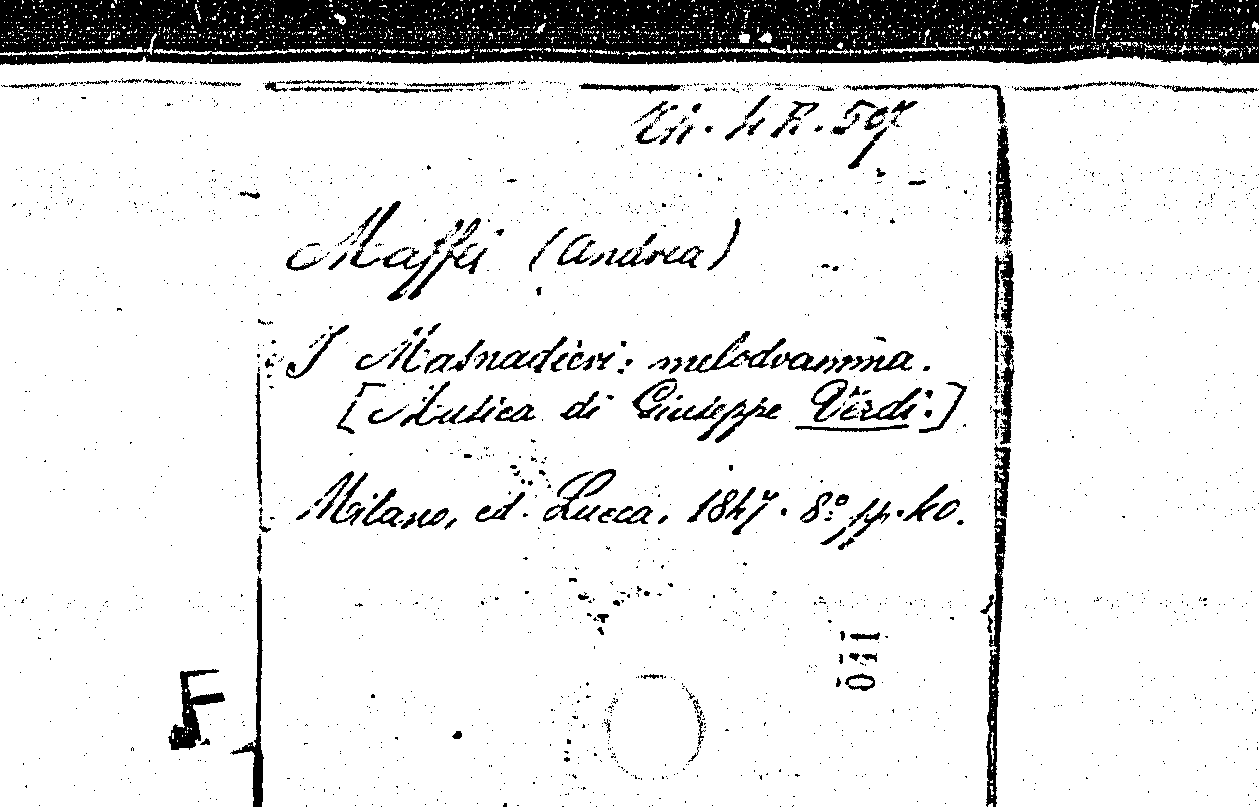 Th. 4 R. 507
Maffei (Andrea)
I Masnadieri: melodramma.
[Musica di Giuseppe Verdi.]
Milano, ed. Lucca, 1847. 8º pp. 40.
F